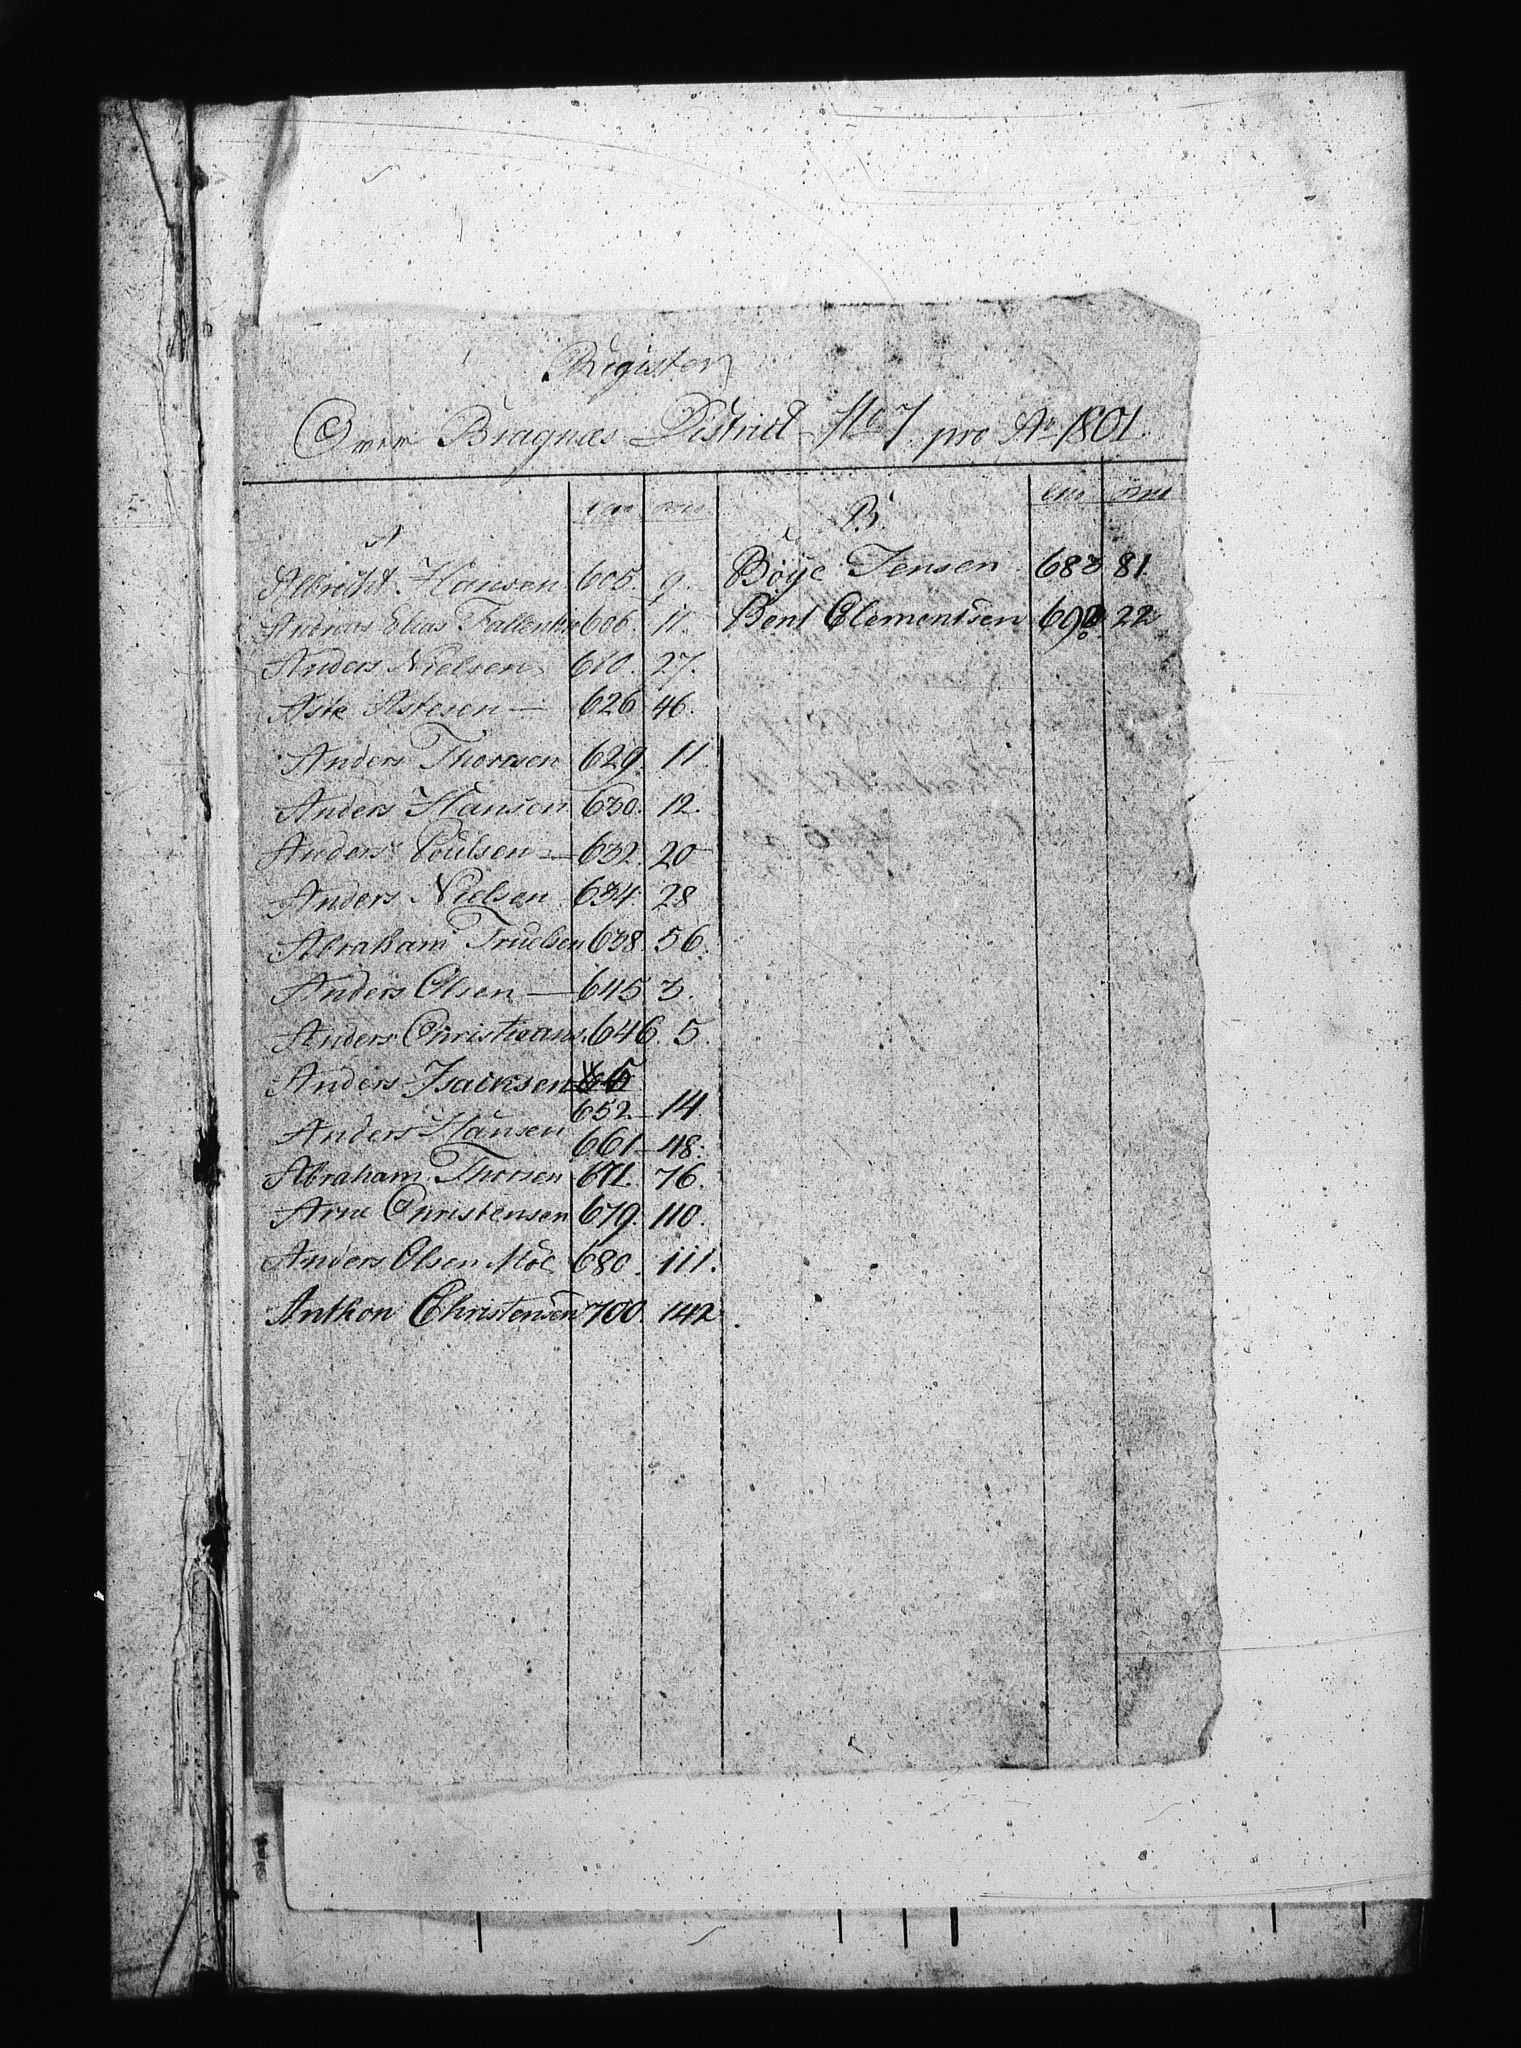 Register
Over Bragnæs District No 7 pro Ao 1801.
A
Albrecht Hansen 605. 9.
Andreas Elias 606. 11.
Anders Nielsen 610. 27.
Aste Astesen — 626 46.
Anders Thorsen 629. 11.
Anders Hansen 630. 12.
Anders Poulsen — 632. 20
Anders Nielsen 634 28
Abraham Truelsen 638. 56.
Anders Olsen — 645 3.
Anders Christians. 646. 5.
Anders Isacksen
652 — 14
Anders Hansen 661 — 48.
Abraham Thorsen 671. 76.
Arne Christensen 679. 110.
Anders Olsen Moe 680. 111.
Anthon Christensen 700. 142.
B.
Böye Jensen 683 81.
Bent Clementsen 22